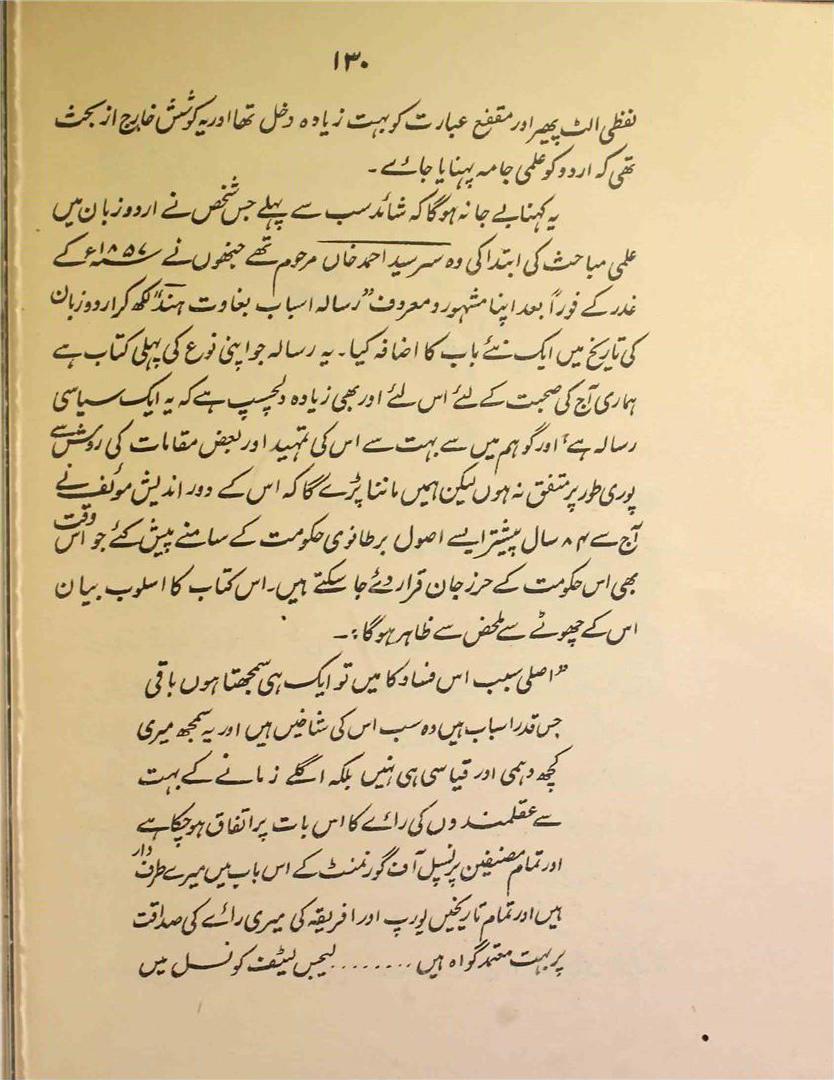 ۱۳۰
لفظی الٹ پھیر اور مقفع عبارت کو بہت زیادہ دخل تھا اور یہ کوشش خارج از بحث
تھی کہ اردو کو علمی جامہ پہنایا جائے۔
یہ کہنا بے جا نہ ہوگا کہ شائد سب سے پہلے جس شخص نے اردو زبان میں
علمی مباحث کی ابتدا کی وہ سر سید احمد خاں مرحوم تھے جنھوں نے ۱۸۵۷ء کے
غدر کے فوراً بعد اپنا مشہور و معروف ”رسالہ اسباب بغاوت ہند“ لکھ کر اردو زبان
کی تاریخ میں ایک نئے باب کا اضافہ کیا۔ یہ رسالہ جو اپنی نوع کی پہلی کتاب ہے
ہماری آج کی صحبت کے لئے اس لئے اور بھی زیادہ دلچسپ ہے کہ یہ ایک سیاسی
رسالہ ہے، اور گو ہم میں سے بہت سے اس کی تمہید اور بعض مقامات کی روش سے
پوری طور پر متفق نہ ہوں لیکن ہمیں ماننا پڑے گا کہ اس کے دور اندیش مولف نے
آج سے ۸۴ سال پیشتر ایسے اصول برطانوی حکومت کے سامنے پیش کئے جو اس وقت
بھی اس حکومت کے حرز جان قرار دئے جا سکتے ہیں۔ اس کتاب کا اسلوب بیان
اس کے چھوٹے سے ملخص سے ظاہر ہوگا:۔
”اصلی سبب اس فساد کا میں تو ایک ہی سمجھتا ہوں باقی
جس قدر اسباب ہیں وہ سب اس کی شاخیں ہیں اور یہ سمجھ میری
کچھ وہمی اور قیاسی ہی نہیں بلکہ اگلے زمانے کے بہت
سے عقلمندوں کی رائے کا اس بات پر اتفاق ہو چکا ہے
اور تمام مصنفین پرنسپل آف گورنمنٹ کے اس باب میں میرے طرف دار
ہیں اور تمام تاریخیں یورپ اور افریقہ کی میری رائے کی صداقت
پر بہت معتمد گواہ ہیں ........ لیجس لیٹف کونسل میں